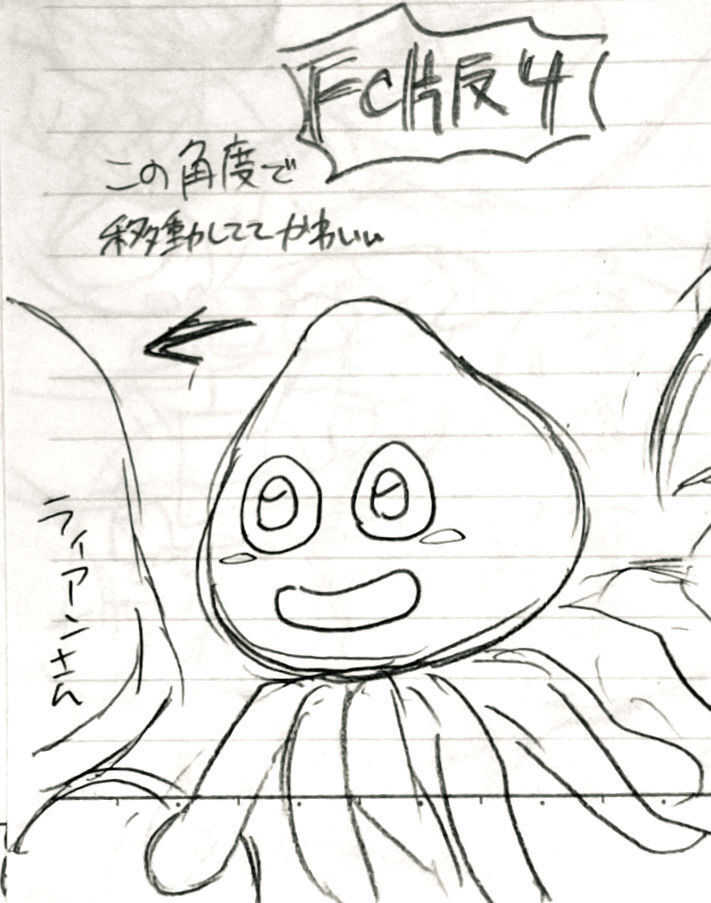 FC片反4
この角度で
移動しててかわいい
ライアンさん